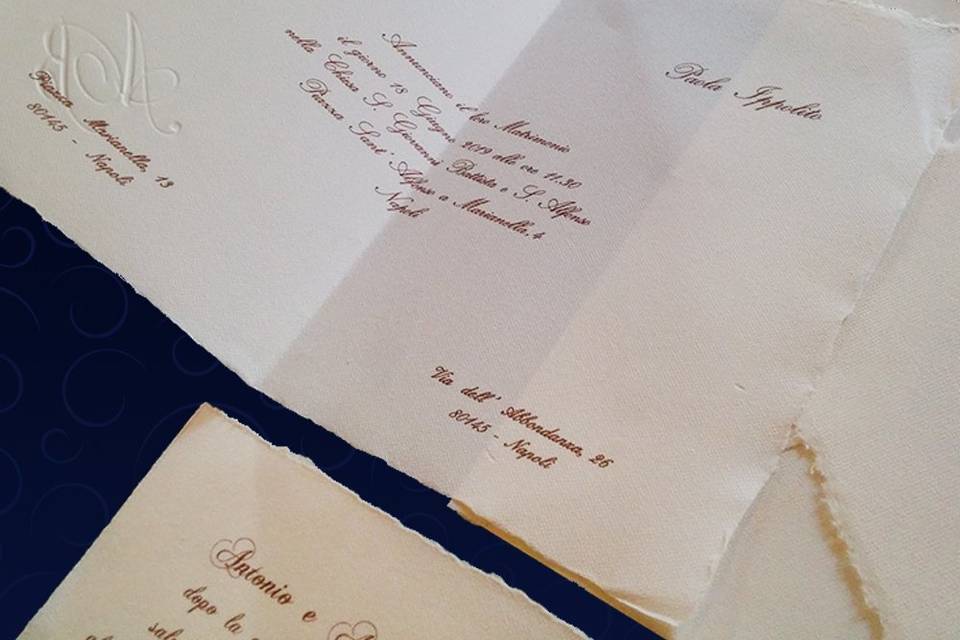 Piazza Marianella, 13
80145 - Napoli
Annunciano il loro Matrimonio
il giorno 18 Giugno 2019 alle ore 11.30
nella Chiesa S. Giovanni Battista e S. Alfonso
Piazza Sant' Alfonso a Marianella,4
Napoli
Paola Ippolito
Via dell' Abbondanza, 26
80145 - Napoli
Antonio e
dopo la